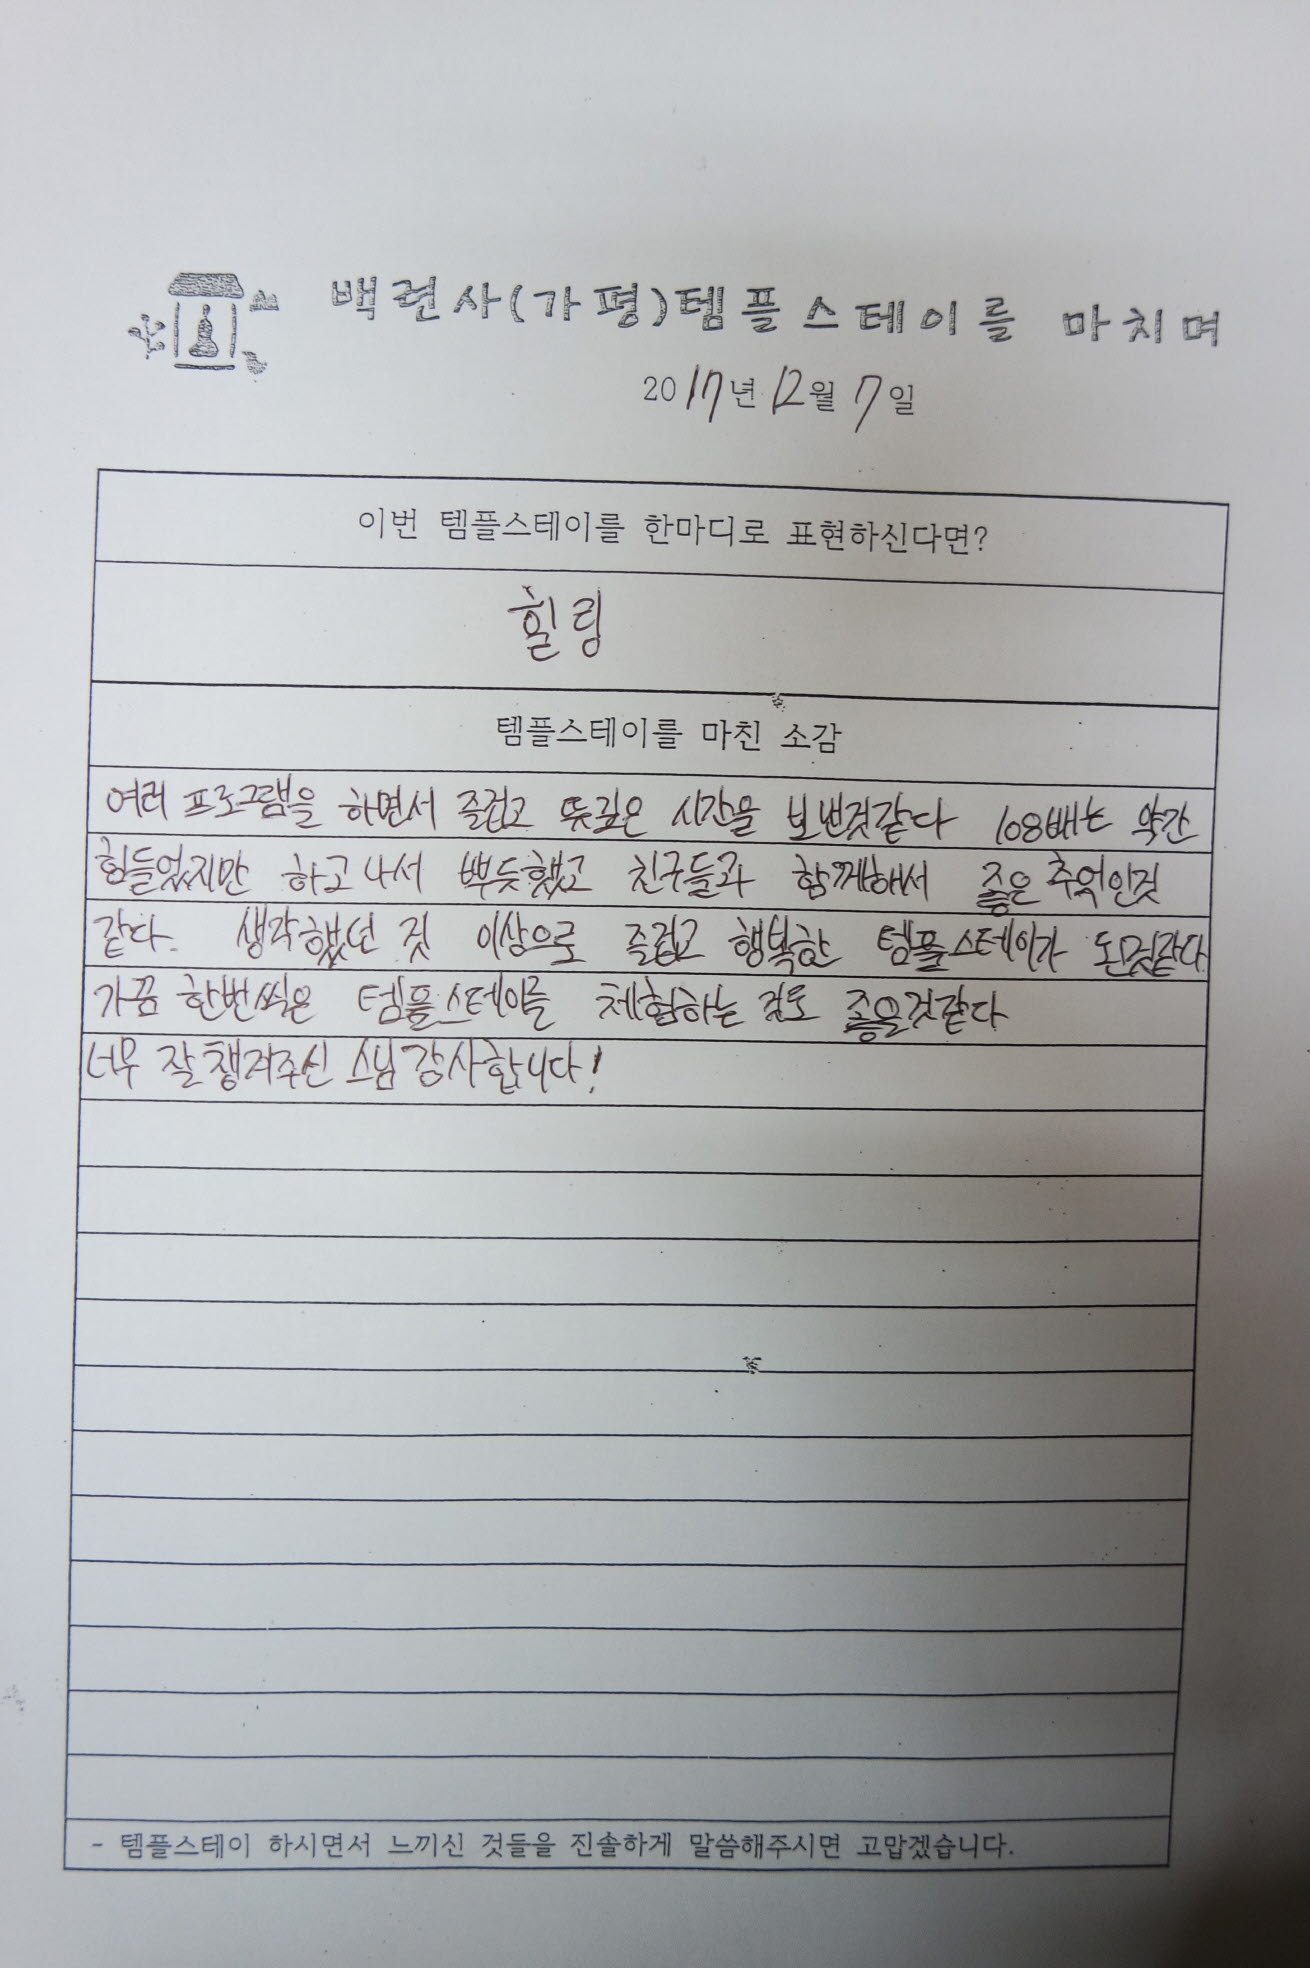 백련사(가평)템플스테이를 마치며
2017년 12월 7일
이번 템플스테이를 한마디로 표현하신다면?
힐링
템플스테이를 마친 소감
여러 프로그램을 하면서 즐겁고 뜻깊은 시간을 보낸것같다 108배는 약간
힘들었지만 하고나서 뿌듯했고 친구들과 함께해서 좋은 추억인것
같다. 생각했던 것 이상으로 즐겁고 행복한 템플스테이가 된것같다.
가끔 한번씩은 템플스테이를 체험하는 것도 좋을것같다
너무 잘 챙겨주신 스님 감사합니다!
- 템플스테이 하시면서 느끼신 것들을 진솔하게 말씀해주시면 고맙겠습니다.